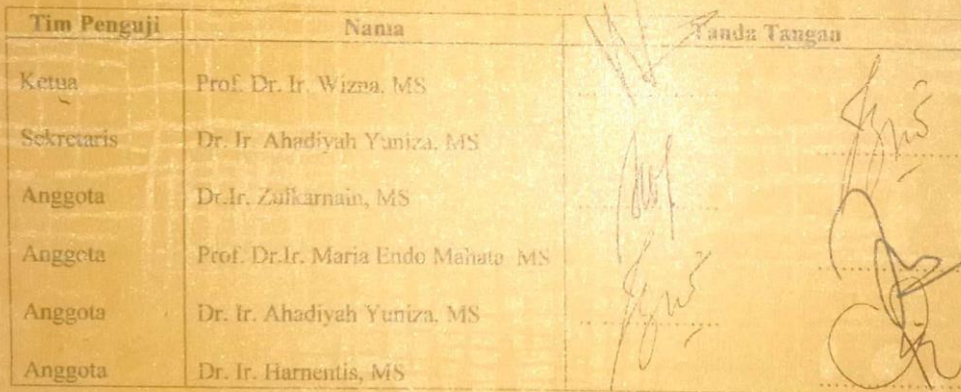 Tim Penguji Nama Tanda Tangan
Ketua Prof. Dr. Ir. Wizna, MS
Sekretaris Dr. Ir. Ahadiyah Yuniza, MS
Anggota Dr.Ir. Zulkarnain, MS
Anggota Prof. Dr.Ir. Maria Endo Mahata MS
Anggota Dr. Ir. Ahadiyah Yuniza, MS
Anggota Dr. Ir. Harnentis, MS